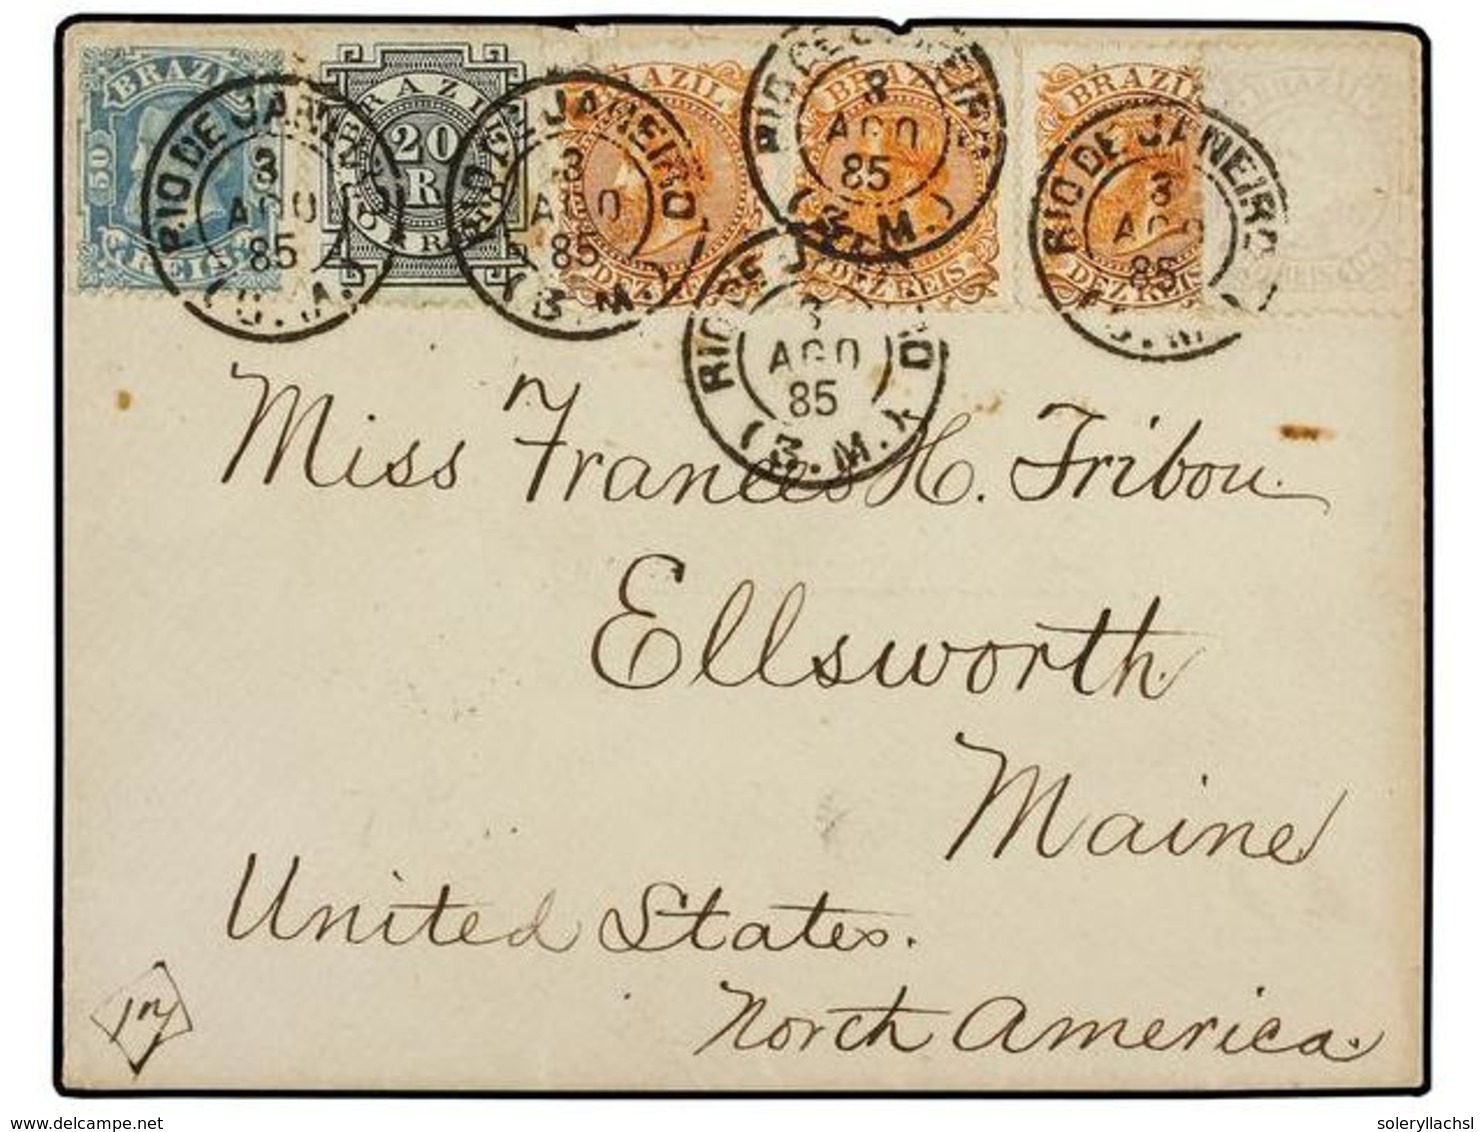 BRAZIL
50
REIS
BRAZIL
20
R
BRAZIL
DEZ REIS
BRAZIL
DEZ REIS
BRAZIL
DEZ REIS
RIO DE JANEIRO
3
AGO
85
JANEIRO
3
AGO
85
(3.M.)
RIO DE JANEIRO
3
AGO
85
(3.M.)
RIO DE J
3
AGO
85
(3.M.)
RIO DE JANEIRO
3
AGO
85
Miss Frances H. Tribou
Ellsworth
Maine
United States.
North America.
www.delcampe.net
soleryllachsl